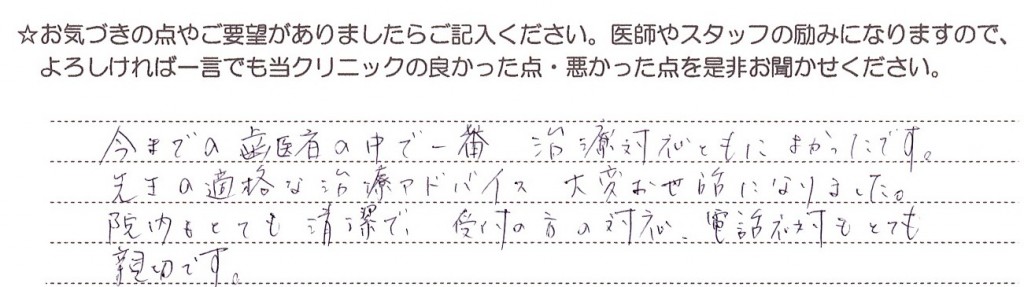 ☆お気づきの点やご要望がありましたらご記入ください。医師やスタッフの励みになりますので、
よろしければ一言でも当クリニックの良かった点・悪かった点を是非お聞かせください。
今までの歯医者の中で一番 治療対応ともによかったです。
先生の適格な治療アドバイス 大変お世話になりました。
院内もとても清潔で、受付の方の対応、電話応対もとても
親切です。